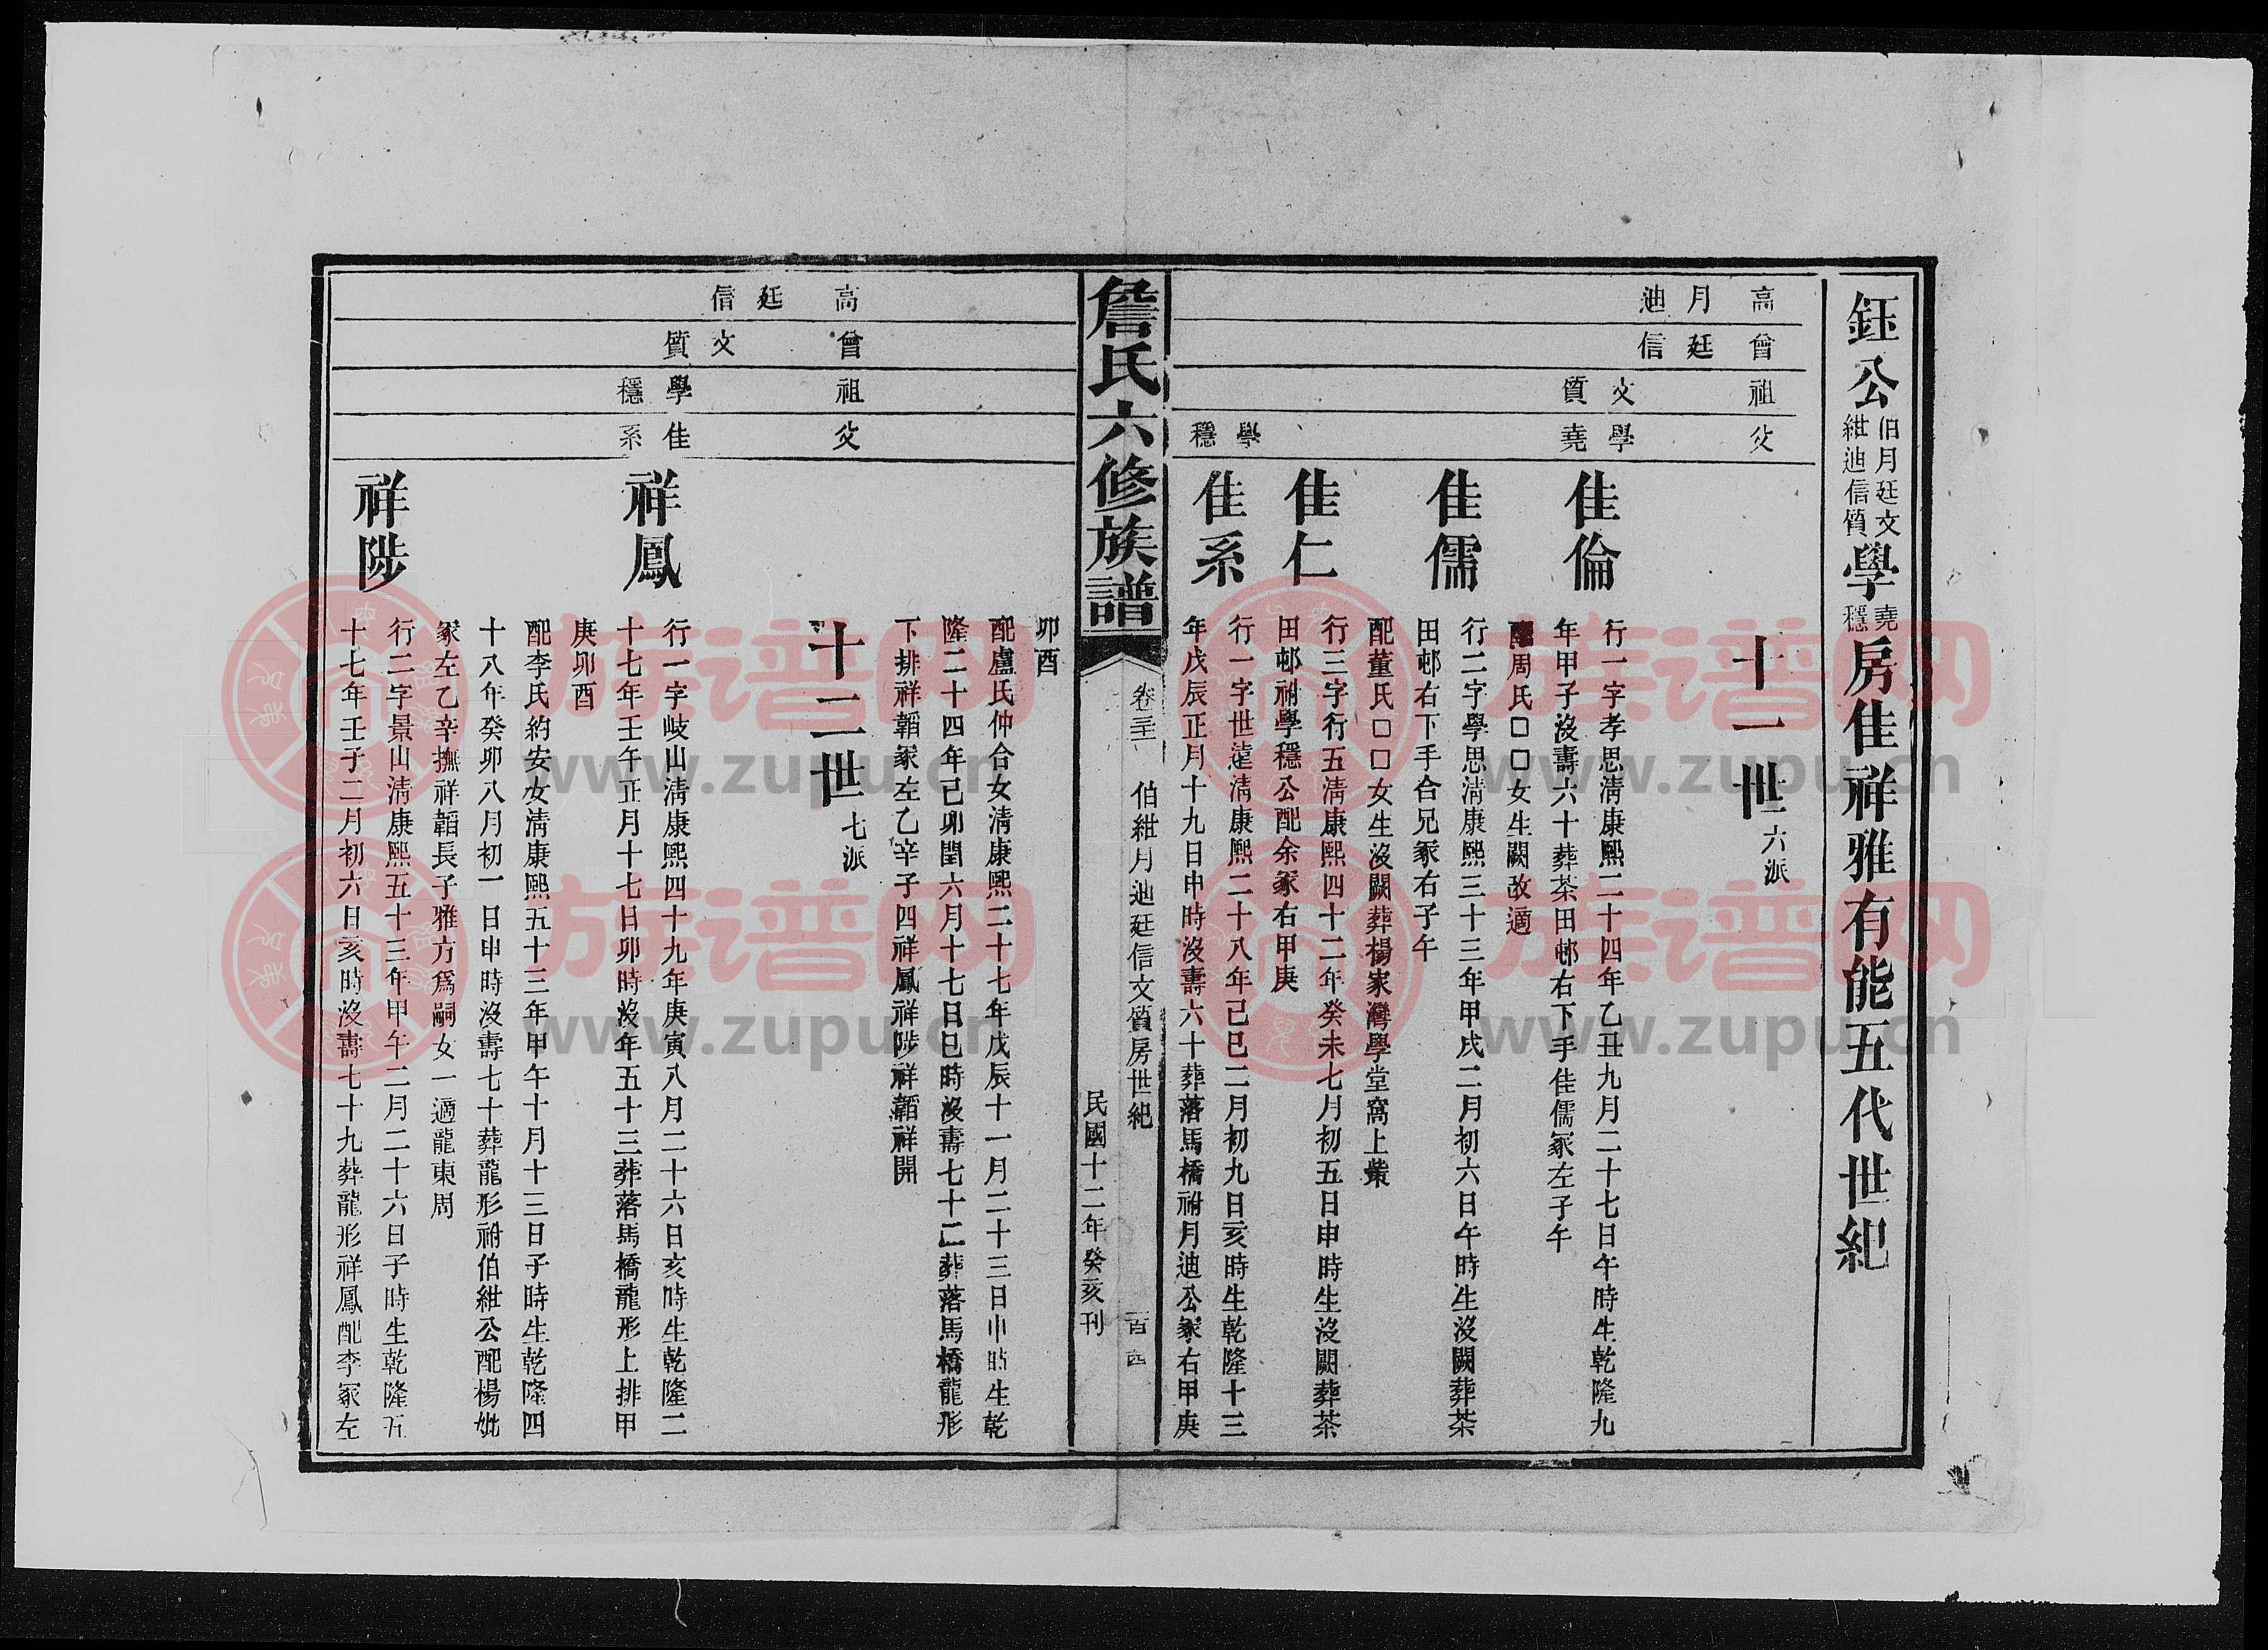 鈺公伯紺月迪廷信文質學堯穩房佳祥雅有能五代世紀
高 月迪
曾 廷信
祖 文質
父 學堯 學穩
十一世六派
佳倫
行一字孝思清康熙二十四年乙丑九月二十七日午時生乾隆九
年甲子沒壽六十葬茶田邨右下手佳儒冢左子午
配周氏□□女生闕改適
佳儒
行二字學思清康熙三十三年甲戌二月初六日午時生沒闕葬茶
田邨右下手合兄冢右子午
配董氏□□女生沒闕葬楊家灣學堂窩上業
佳仁
行三字行五清康熙四十二年癸未七月初五日申時生沒闕葬茶
田邨祔學穩公配余冢右甲庚
佳系
行一字世遠清康熙二十八年己巳二月初九日亥時生乾隆十三
年戊辰正月十九日申時沒壽六十葬落馬橋祔月迪公冢右甲庚
詹氏六修族譜
卷三 伯紺月迪廷信文質房世紀 百四
民國十二年癸亥刊
卯酉
配盧氏仲合女清康熙二十七年戊辰十一月二十三日巾時生乾
隆二十四年己卯閏六月十七日巳時沒壽七十二葬落馬橋龍形
下排祥韜冢左乙辛子四祥鳳祥陟祥韜祥開
高 廷信
曾 文質
祖 學穩
父 佳系
十二世七派
祥鳳
行一字岐山清康熙四十九年庚寅八月二十六日亥時生乾隆二
十七年壬午正月十七日卯時沒年五十三葬落馬橋龍形上排甲
庚卯酉
配李氏約安女清康熙五十三年甲午十月十三日子時生乾隆四
十八年癸卯八月初一日申時沒壽七十葬龍形祔伯紺公配楊妣
冢左乙辛撫祥韜長子雅方為嗣女一適龍東周
祥陟
行二字景山清康熙五十三年甲午二月二十六日子時生乾隆五
十七年壬子二月初六日亥時沒壽七十九葬龍形祥鳳配李冢左
族谱网
www.zupu.cn
族谱网
www.zupu.cn
族谱网
www.zupu.cn
族谱网
www.zupu.cn